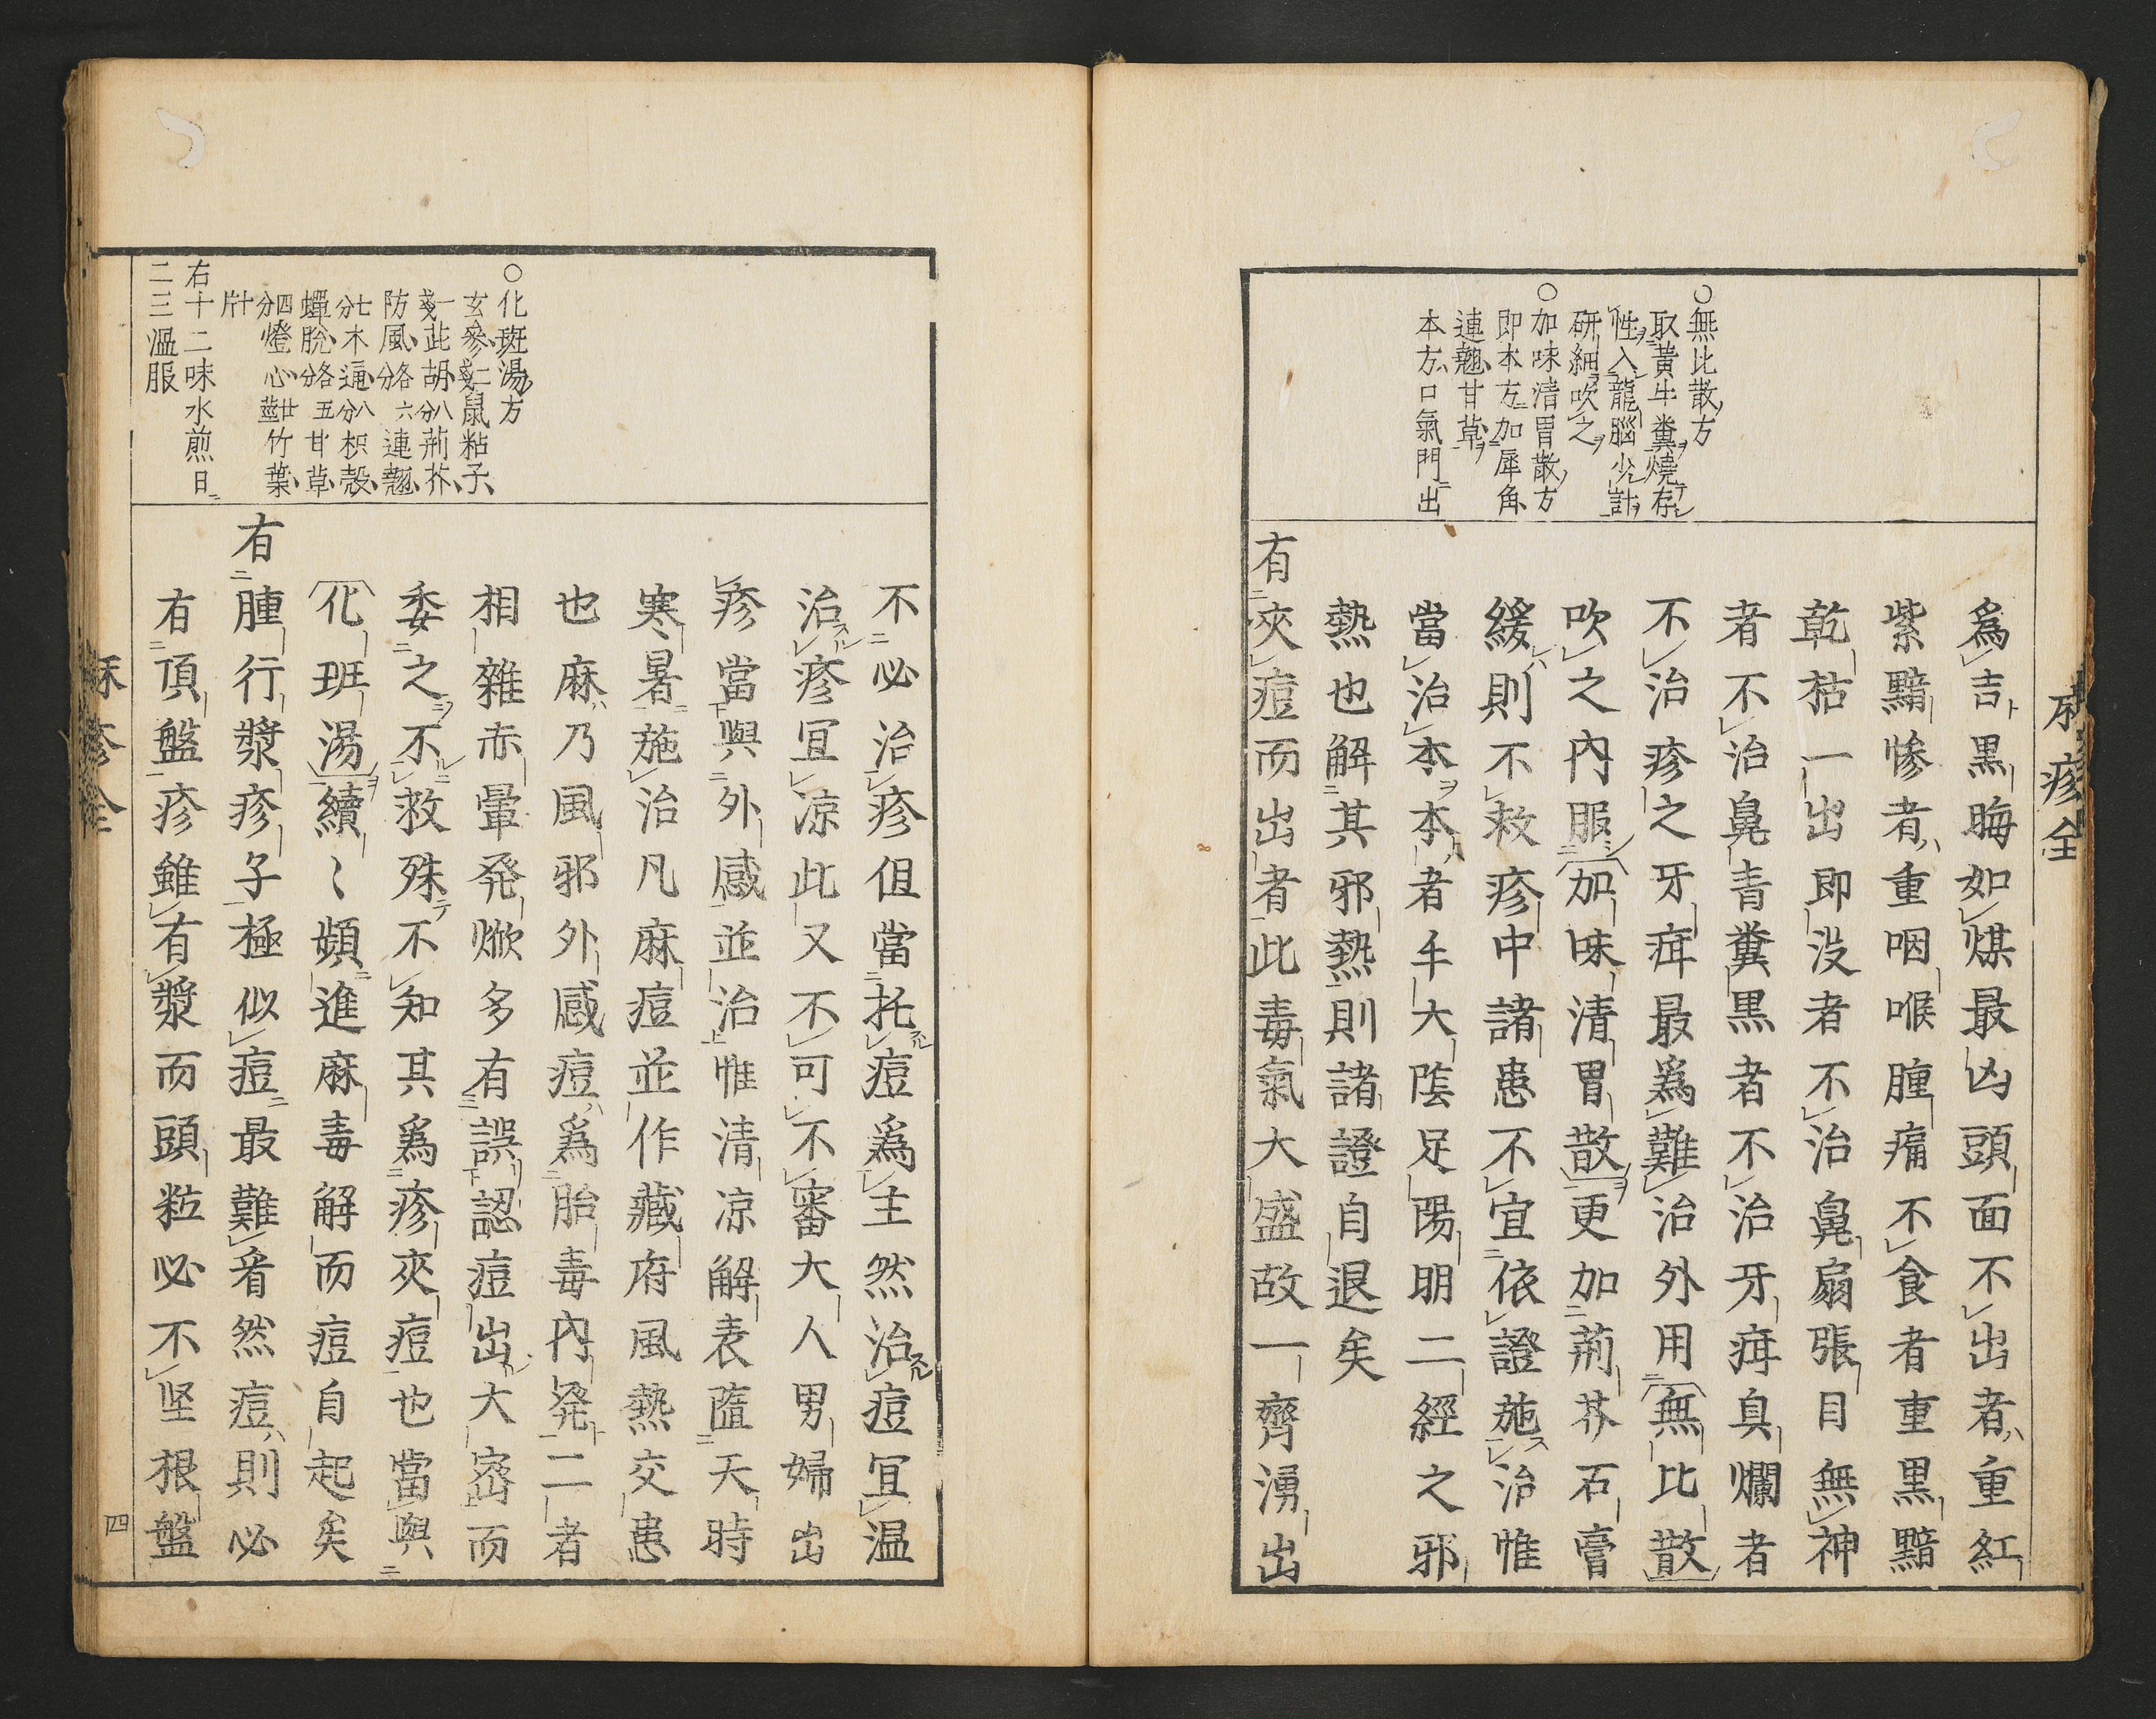 麻疹全
○無比散方
取黃牛糞燒存
性入龍腦少許
研細吹之
○加味清胃散方
即本方加犀角
連翹甘草
本方口氣門出
爲吉黒晦如煤最凶頭面不出者重紅
紫黯慘者重咽喉腫痛不食者重黒黯
乾枯一出即没者不治鼻扇張目無神
者不治鼻青糞黒者不治牙疳臭爛者
不治疹之牙疳最爲難治外用無比散
吹之內服加味清胃散更加荊芥石膏
緩則不救疹中諸患不宜依證施治惟
當治本本者手大陰足陽明二經之邪
熱也解其邪熱則諸證自退矣
有夾痘而出者此毒氣大盛故一齊湧出
○化斑湯方
玄參二戔鼠粘子
一戔茈胡八分荊芥
防風各六分連翹
七分木通八分枳殼
蟬脫各五分甘草
四分燈心廿莖竹葉
十片
右十二味水煎日
二三溫服
不必治疹但當托痘爲主然治痘宜温
治疹宜凉此又不可不審大人男婦出
疹當與外感並治惟清凉解表隨天時
寒暑施治凡麻痘並作藏府風熱交患
也麻乃風邪外感痘爲胎毒內発二者
相雜赤暈発焮多有誤認痘出大密而
委之不救殊不知其爲疹夾痘也當與
化斑湯續〻頻進麻毒解而痘自起矣
有腫行漿疹子極似痘最難看然痘則必
有頂盤疹雖有漿而頭粒必不坚根盤
麻疹全
四